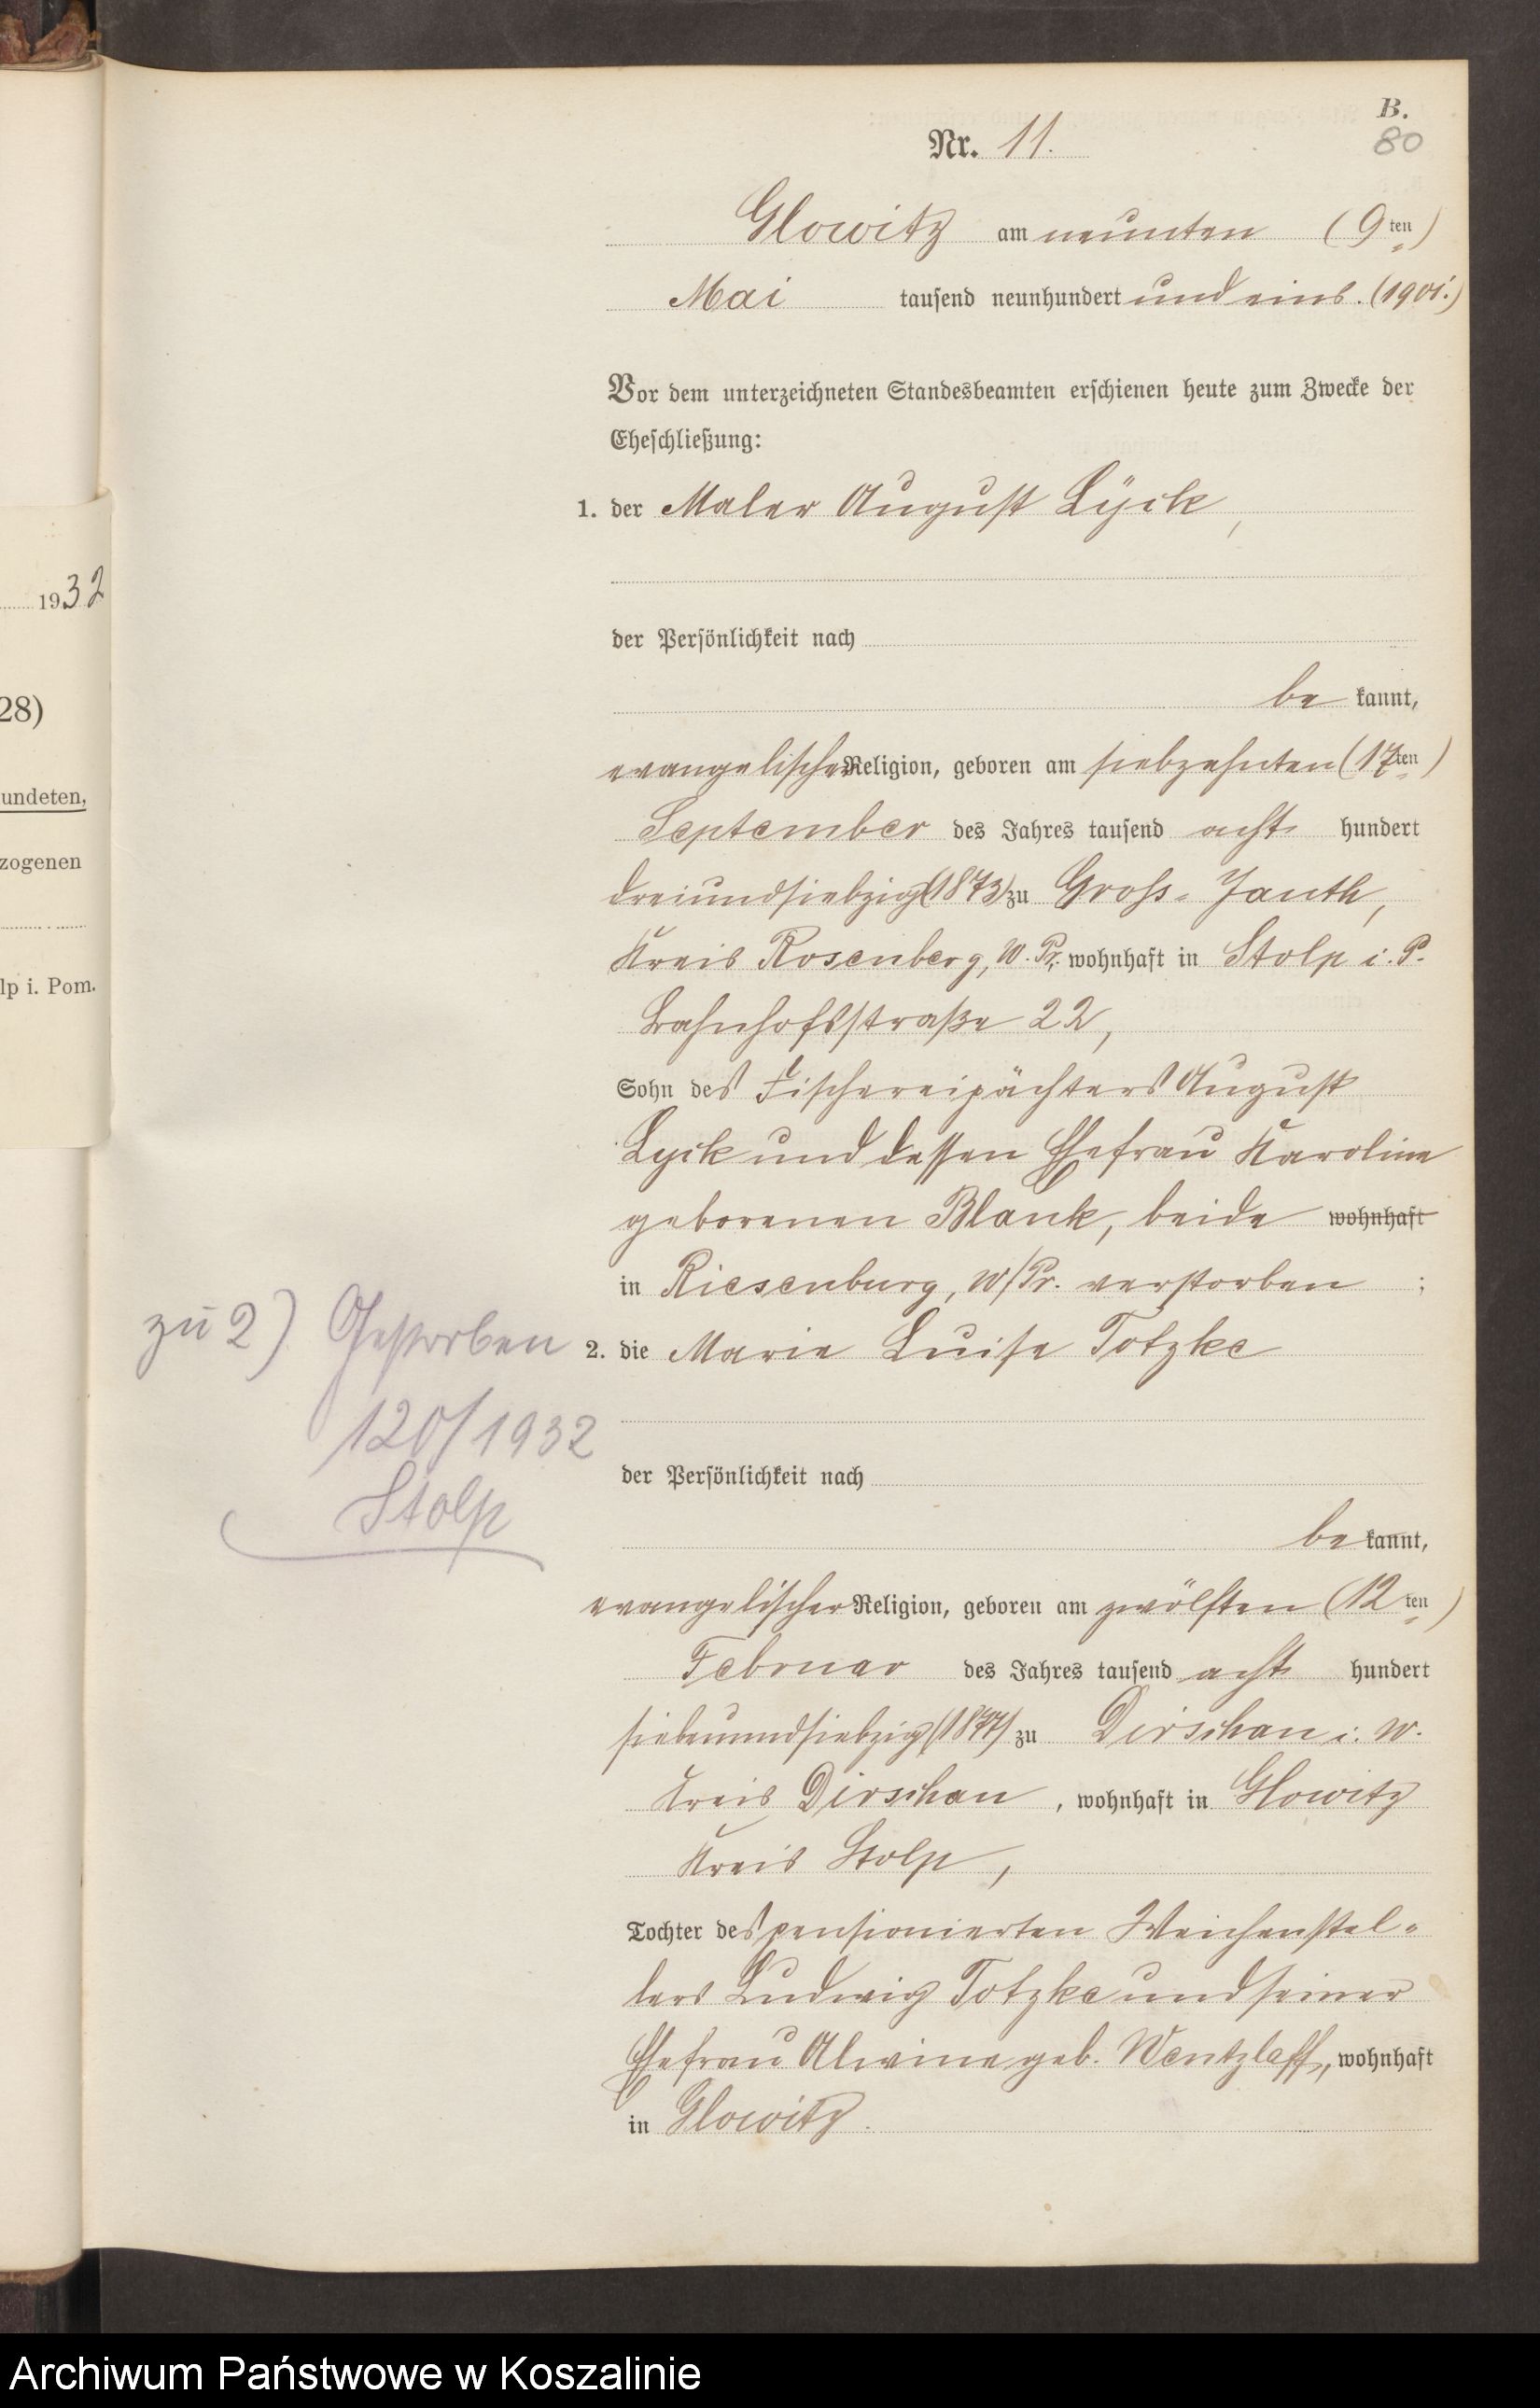 B.
80
Nr. 11.
Glowitz am neunten (9ten)
Mai tausend neunhundert und eins. (1901.)
Vor dem unterzeichneten Standesbeamten erschienen heute zum Zwecke der
Eheschließung:
1. der Maler August Lÿck,
der Persönlichkeit nach
be kannt,
evangelischer Religion, geboren am siebzehnten (17ten)
September des Jahres tausend acht hundert
dreiundsiebzig (1873) zu Gross-Jauth,
Kreis Rosenberg, W. Pr. wohnhaft in Stolp i. P.
Bahnhofsstraße 22,
Sohn des Fischereipächters August
Lyck und dessen Ehefrau Karoline
geborenen Blank, beide wohnhaft
in Riesenburg, W/Pr. verstorben ;
2. die Marie Luise Totzke
der Persönlichkeit nach
be kannt,
evangelischer Religion, geboren am zwölften (12ten)
Februar des Jahres tausend acht hundert
siebenundsiebzig (1877) zu Dirschau i. W.
Kreis Dirschau, wohnhaft in Glowitz
Kreis Stolp,
Tochter des pensionierten Weichenstel-
lers Ludwig Totzke und seiner
Ehefrau Alwine geb. Wentzlaff, wohnhaft
in Glowitz.
zu 2) Gestorben
120/1932
Stolp
1932
28)
undeten,
zogenen
lp i. Pom.
Archiwum Państwowe w Koszalinie